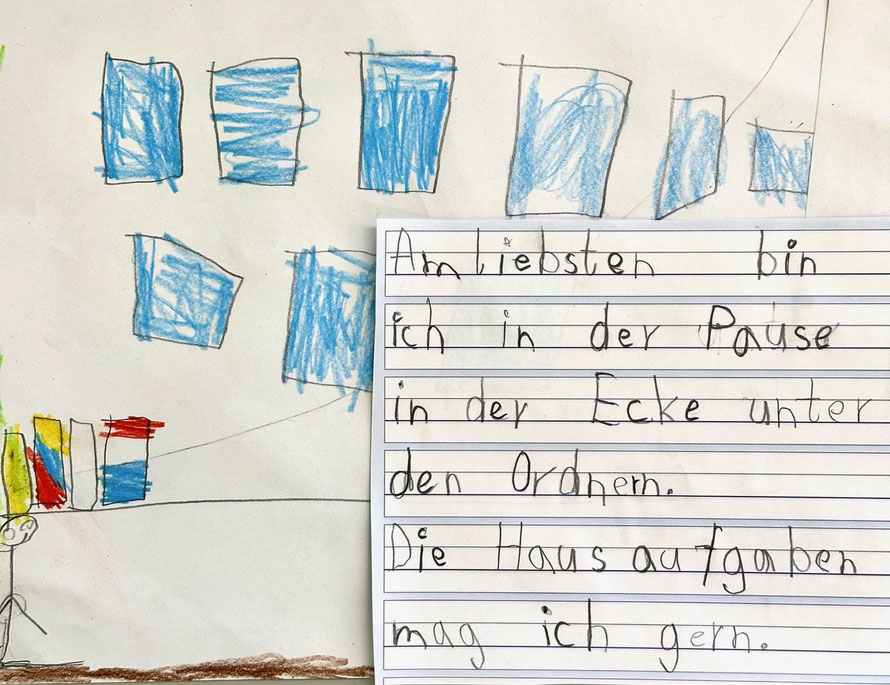 Am liebsten bin
ich in der Pause
in der Ecke unter
den Ordnern.
Die Hausaufgaben
mag ich gern.